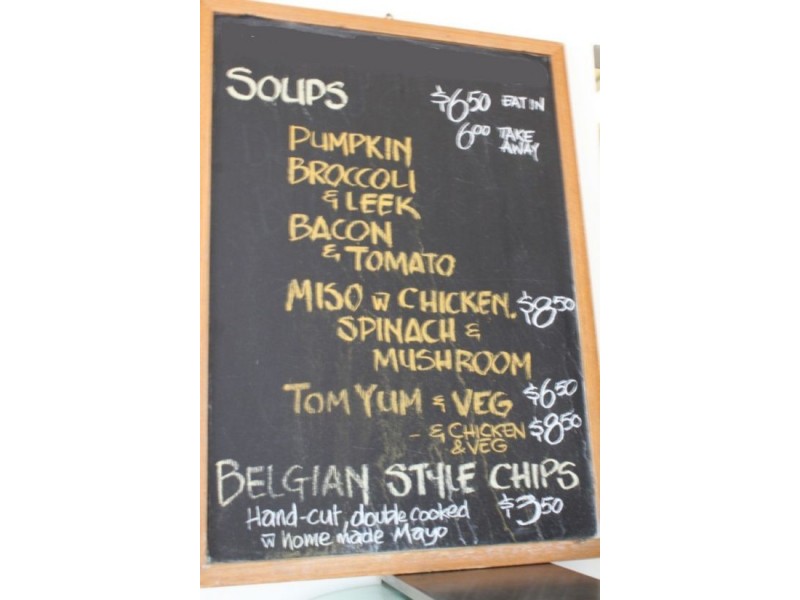 SOUPS $6.50 EAT IN
6.00 TAKE
AWAY
PUMPKIN
BROCCOLI
& LEEK
BACON
& TOMATO
MISO w CHICKEN, $8.50
SPINACH &
MUSHROOM
TOM YUM & VEG $6.50
- & CHICKEN $8.50
& VEG
BELGIAN STYLE CHIPS
Hand-cut, double cooked $3.50
w home made Mayo